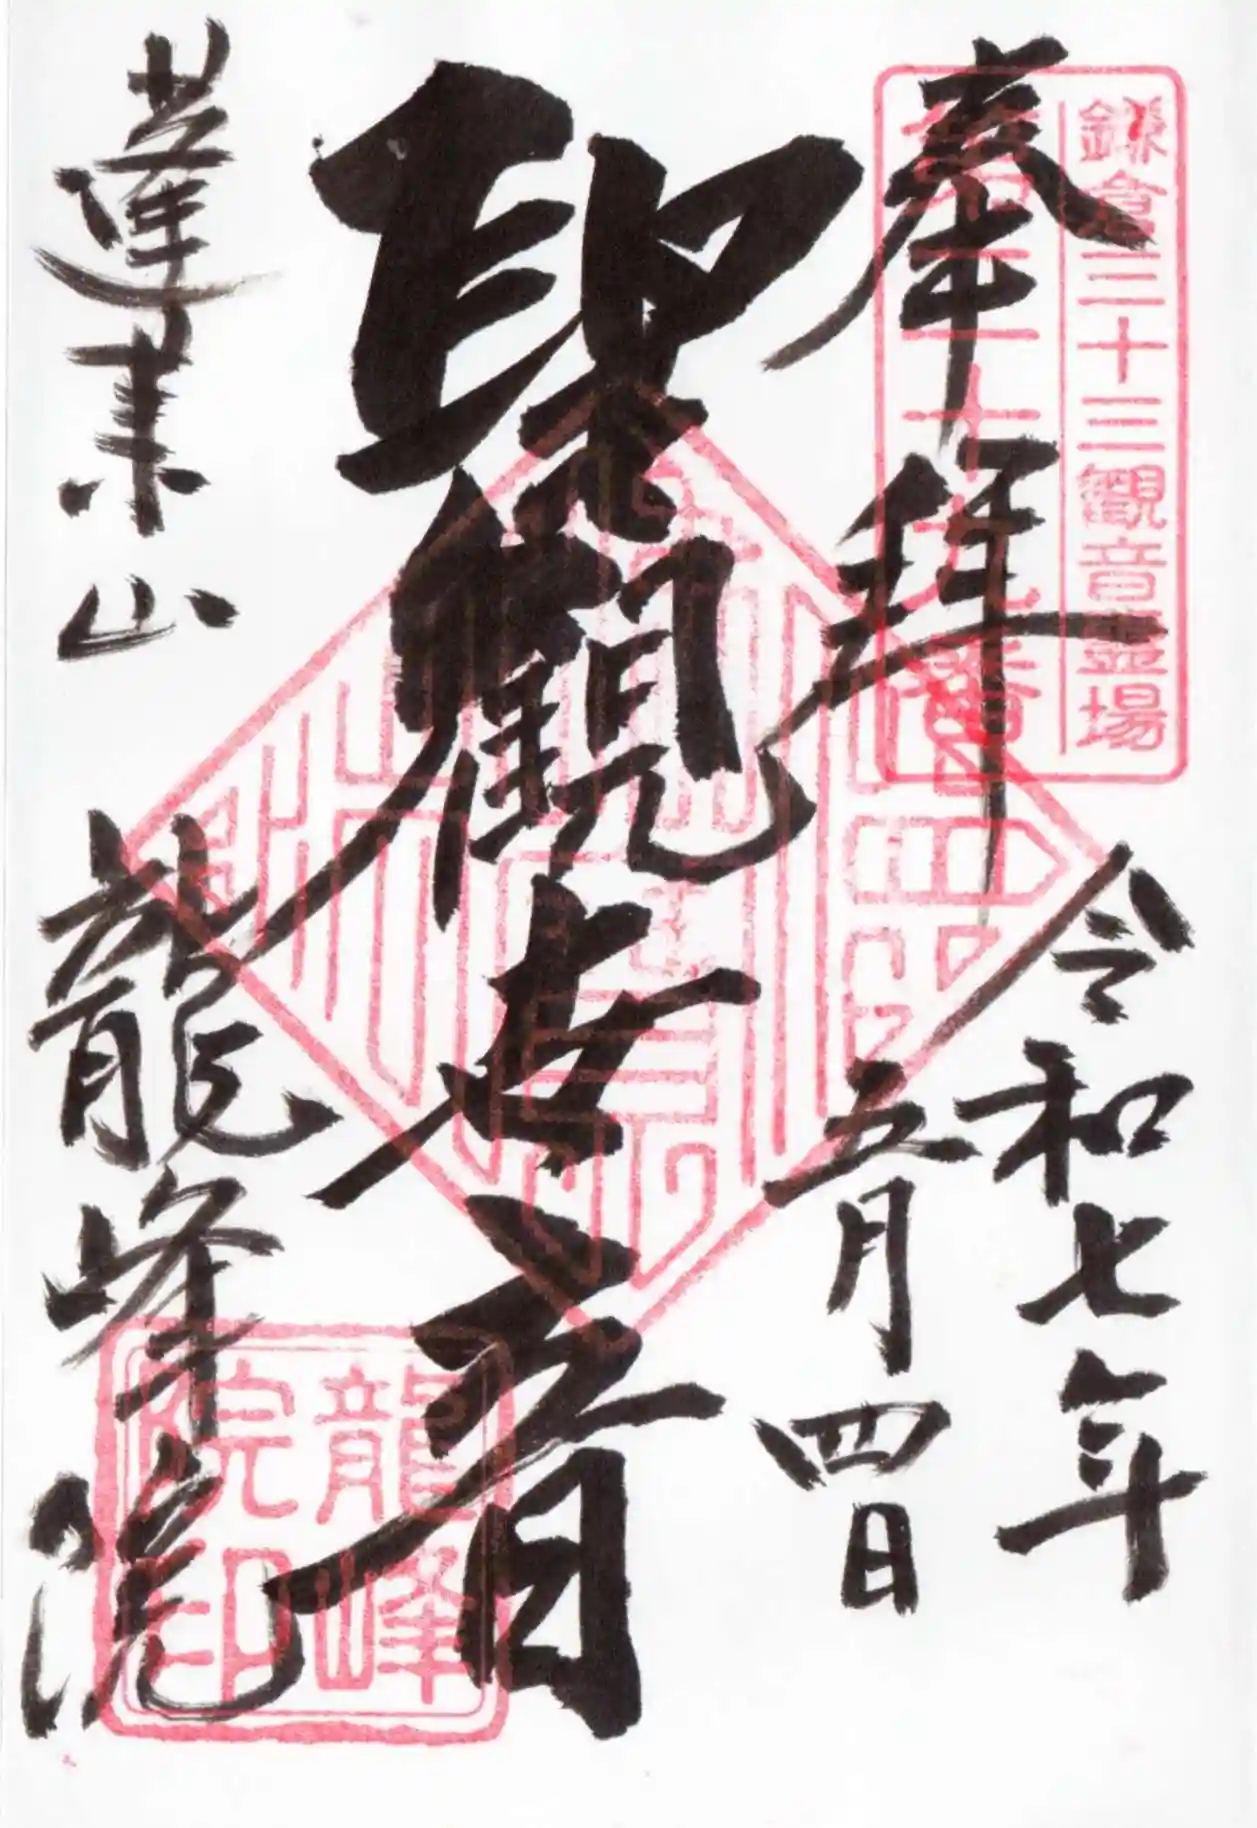 鎌倉三十三観音霊場
第二十九番
奉拝
令和七年
五月四日
聖観世音
蓬莱山
龍峰院
龍峰
院印